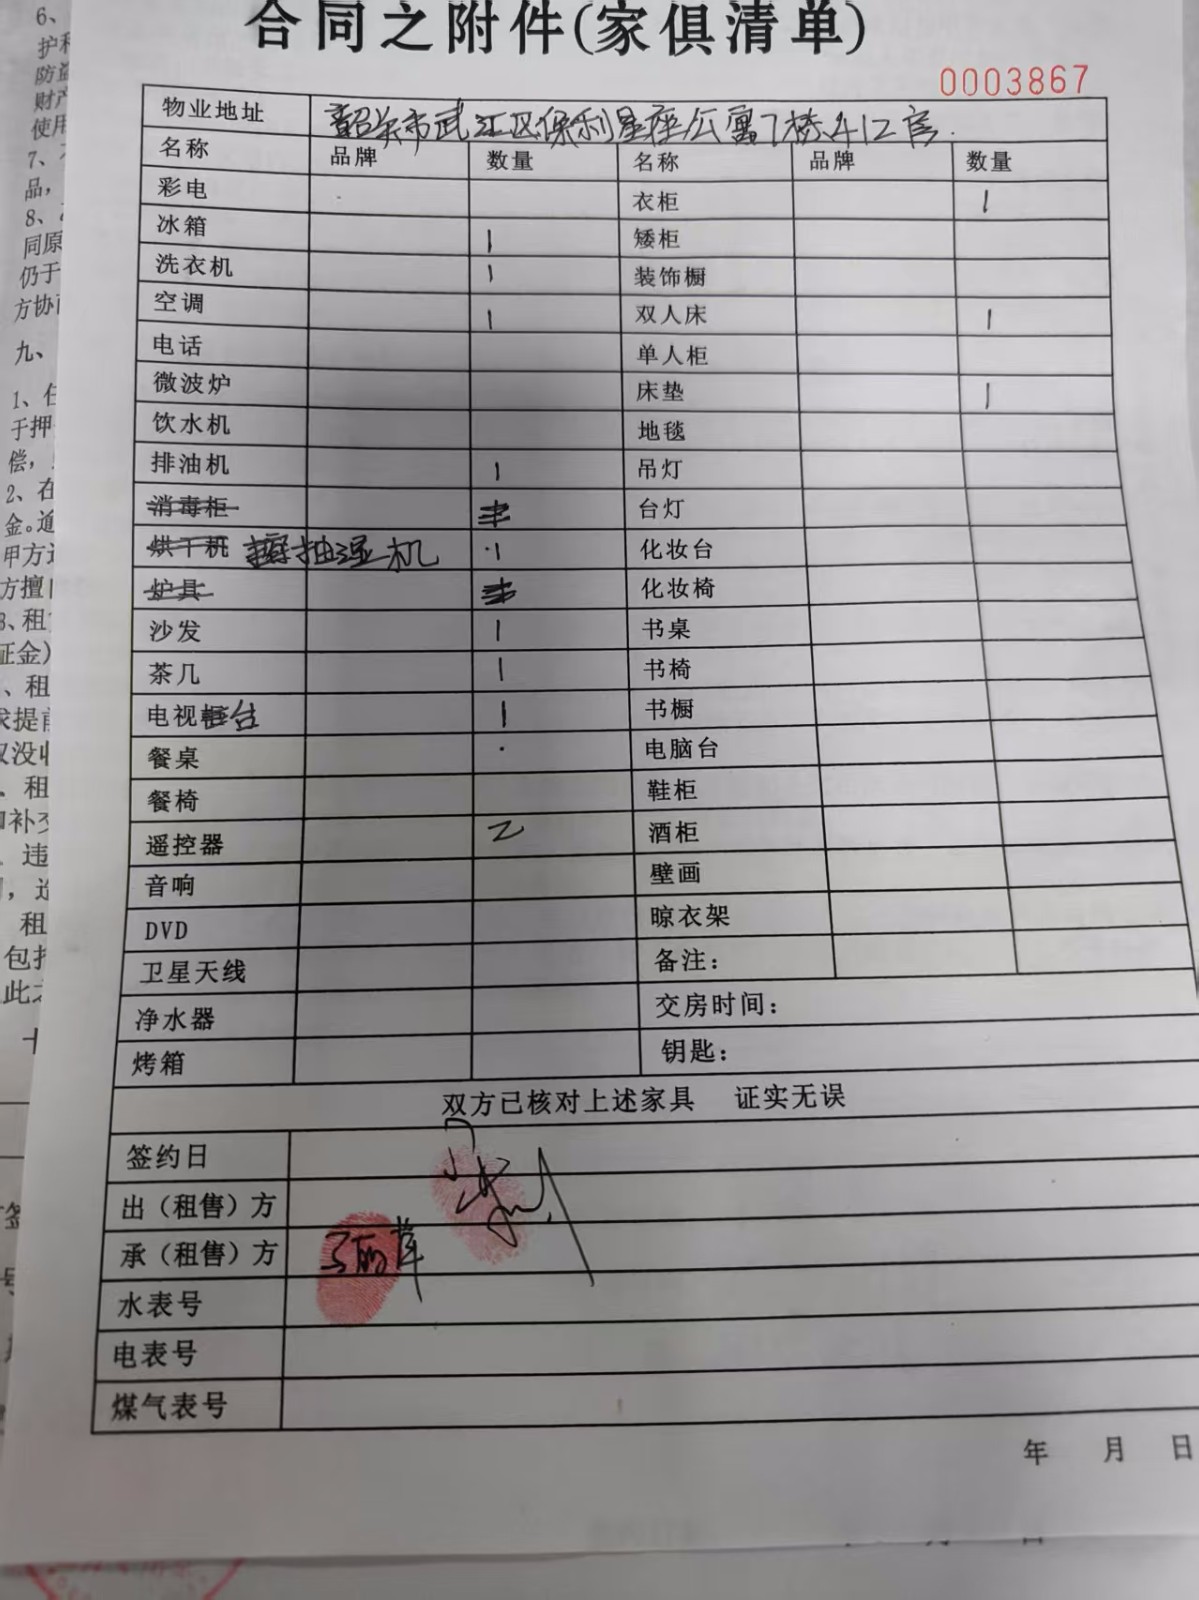 合同之附件(家俱清单)
0003867
物业地址 韶关市武江区保利星座公寓7栋412房.
名称 品牌 数量 名称 品牌 数量
彩电 衣柜 1
冰箱 1 矮柜
洗衣机 1 装饰橱
空调 1 双人床 1
电话 单人柜
微波炉 床垫 1
饮水机 地毯
排油机 1 吊灯
消毒柜 台灯
烘干机 抽湿机 1 化妆台
炉具 化妆椅
沙发 1 书桌
茶几 1 书椅
电视柜台 1 书橱
餐桌 电脑台
餐椅 鞋柜
遥控器 2 酒柜
音响 壁画
DVD 晾衣架
卫星天线 备注：
净水器 交房时间：
烤箱 钥匙：
双方已核对上述家具 证实无误
签约日
出（租售）方
承（租售）方
水表号
电表号
煤气表号
年 月 日
6、
防盗
财产
使用
7、
品，
8、
同原
仍于
方协
九、
1、任
于押
偿，
2、在
金。逾
甲方
方擅
、租
证金）
、租
求提前
权没收
租
补交
违
租
包括
此